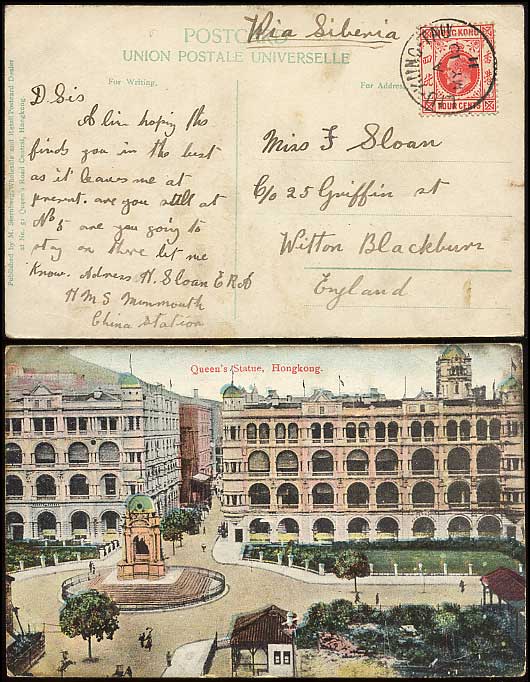 POSTCARD
Via Siberia
UNION POSTALE UNIVERSELLE
For Writing.
For Address
HONG KONG
FOUR CENTS
香港
四仙
LIUNG TAU
D Sis
A line hoping this
finds you in the best
as it leaves me at
present. are you still at
No 5 are you going to
stay on there let me
Know. Adress H. Sloan ERA
HMS Munmouth
China Station
Miss F Sloan
C/o 25 Griffin st
Witton Blackburn
England
Published by M. Sternberg, Wholesale and Retail Postcard Dealer
at No. 51 Queen's Road Central, Hongkong.
Queen's Statue, Hongkong.